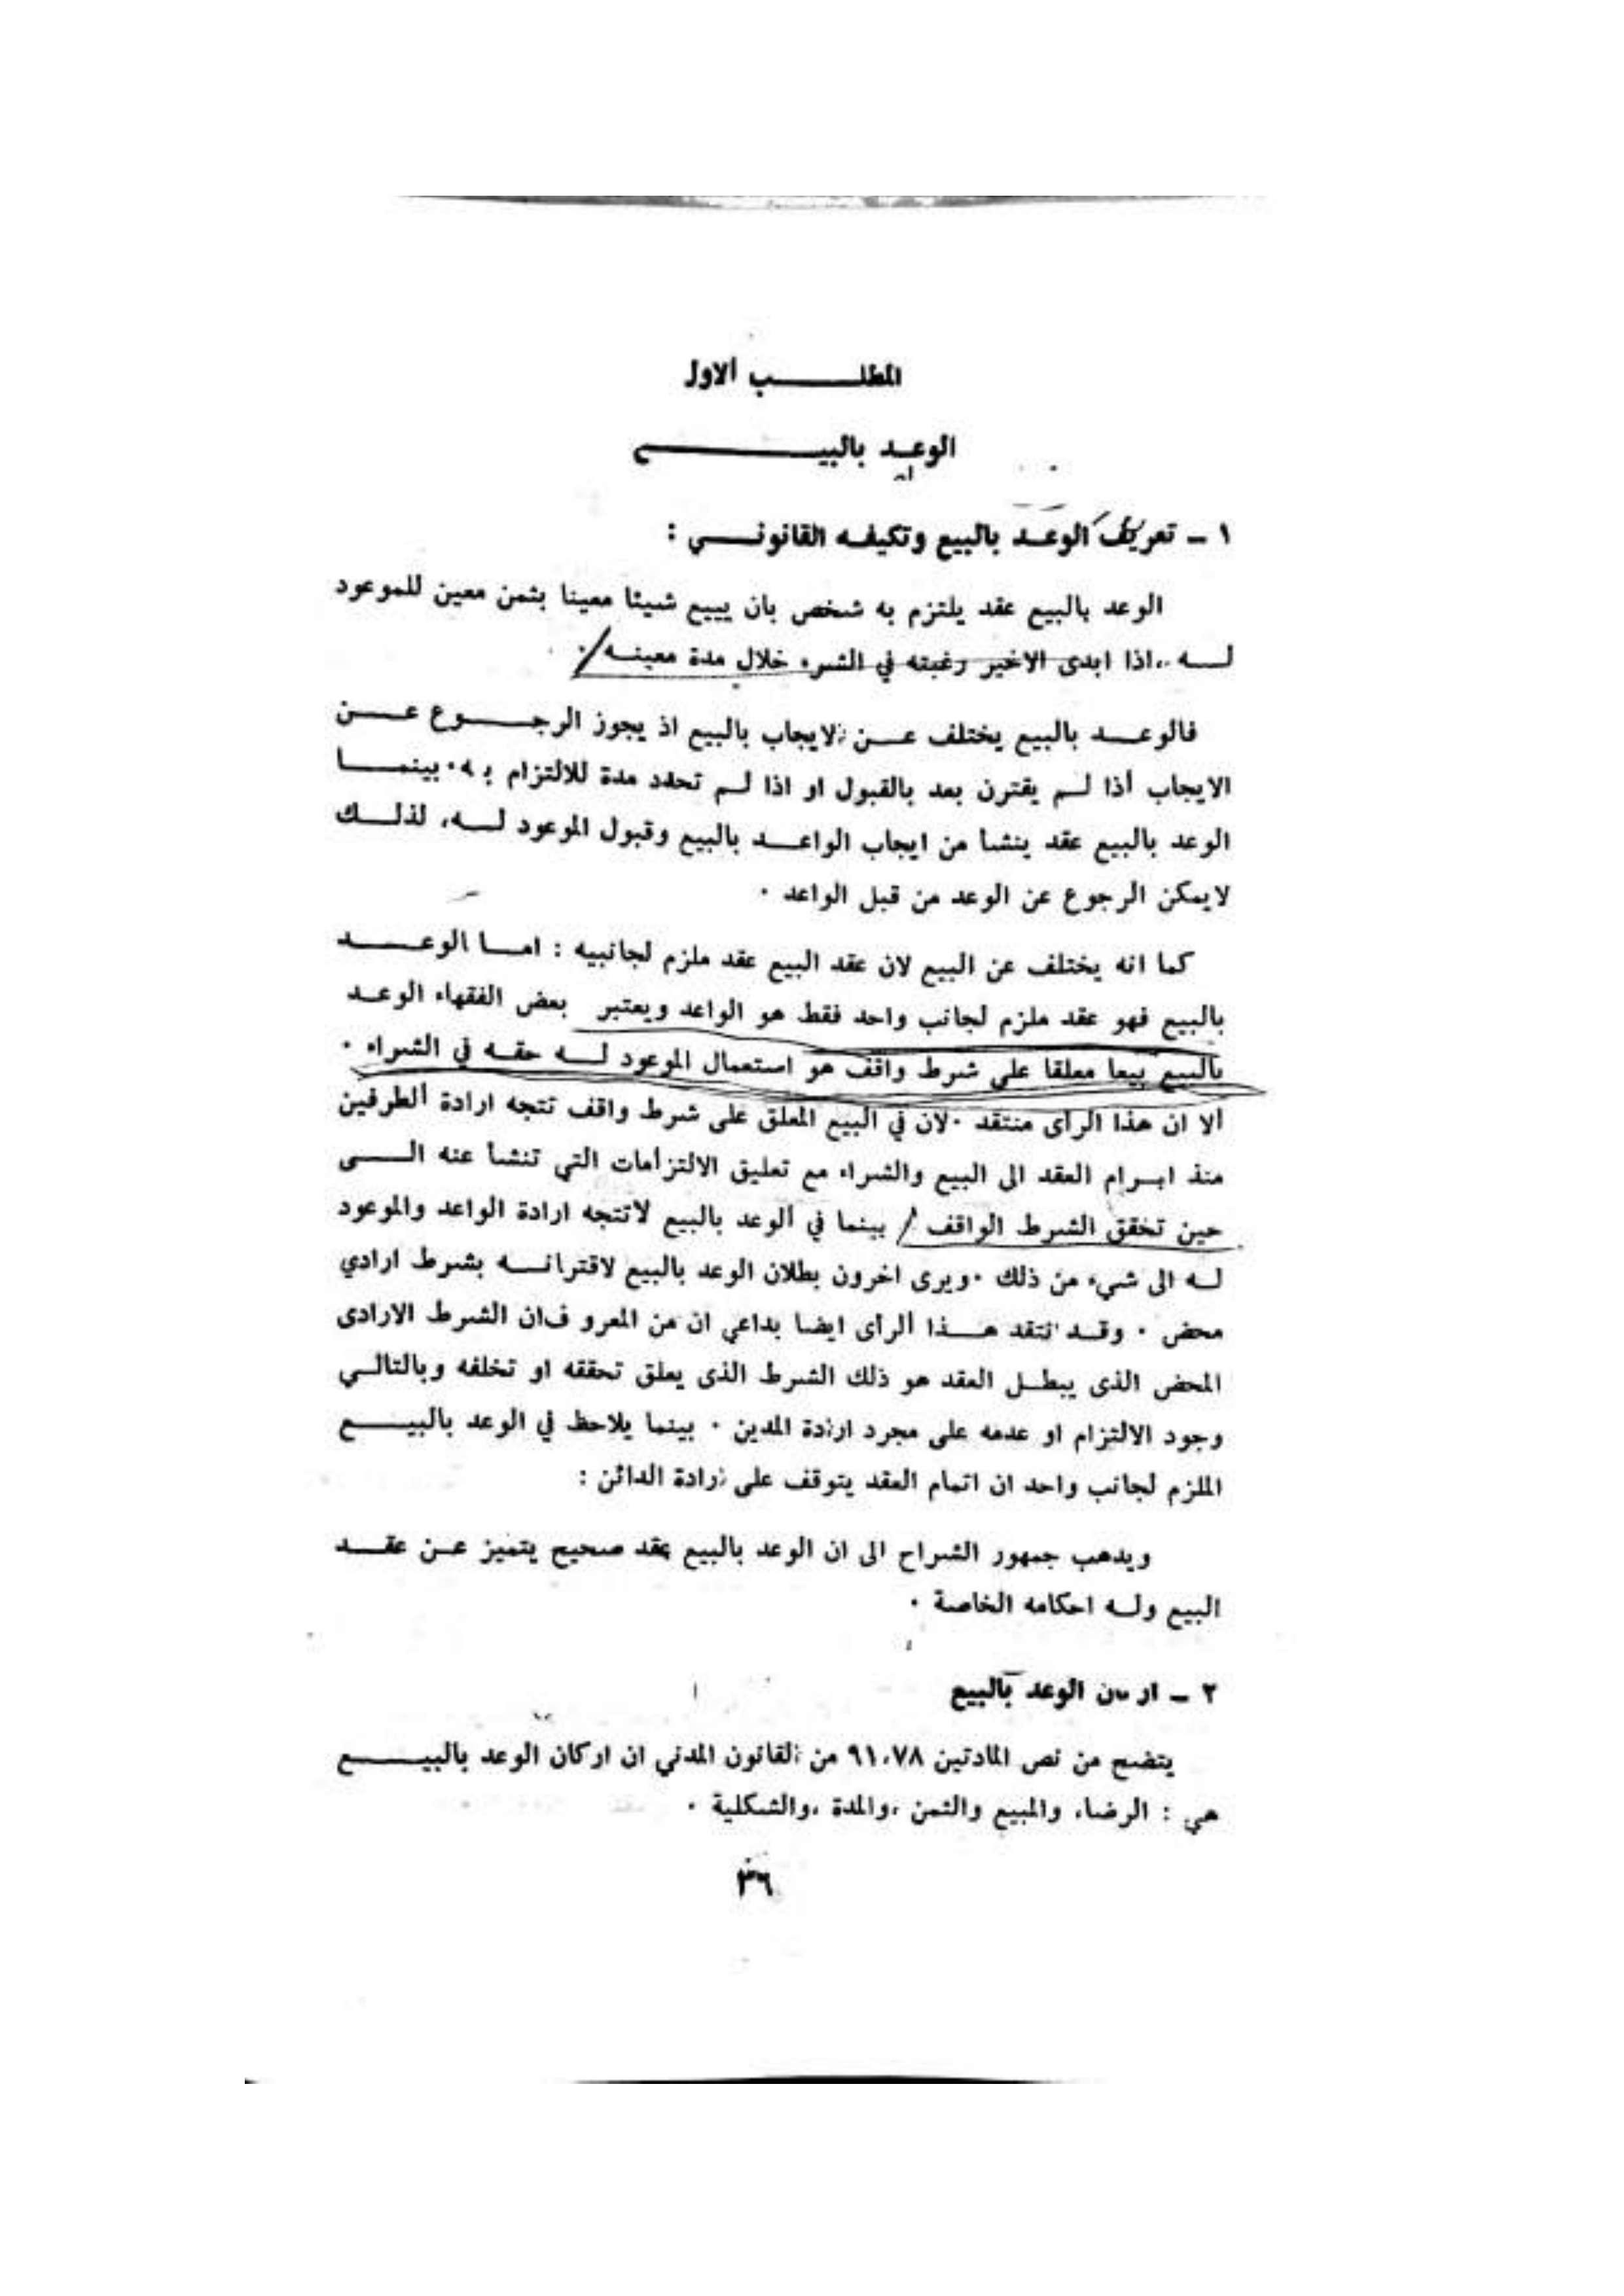 المطلب الاول
الوعد بالبيع
١ - تعريف الوعد بالبيع وتكيفه القانوني :
الوعد بالبيع عقد يلتزم به شخص بان يبيع شيئا معينا بثمن معين للموعود
له ،،اذا ابدى الاخير رغبته في الشراء خلال مدة معينه ٠
فالوعد بالبيع يختلف عن الايجاب بالبيع اذ يجوز الرجوع عن
الايجاب أذا لم يقترن بعد بالقبول او اذا لم تحدد مدة للالتزام به ٠ بينما
الوعد بالبيع عقد ينشا من ايجاب الواعد بالبيع وقبول الموعود له، لذلك
لايمكن الرجوع عن الوعد من قبل الواعد ٠
كما انه يختلف عن البيع لان عقد البيع عقد ملزم لجانبيه : اما الوعد
بالبيع فهو عقد ملزم لجانب واحد فقط هو الواعد ويعتبر بعض الفقهاء الوعد
بالبيع بيعا معلقا على شرط واقف هو استعمال الموعود له حقه في الشراء ٠
ألا ان هذا الرأى منتقد ٠لان في البيع المعلق على شرط واقف تتجه ارادة ألطرفين
منذ ابرام العقد الى البيع والشراء مع تعليق الالتزامات التي تنشأ عنه الى
حين تحقق الشرط الواقف / بينما في ألوعد بالبيع لاتتجه ارادة الواعد والموعود
له الى شيء من ذلك ٠ويرى اخرون بطلان الوعد بالبيع لاقترانه بشرط ارادي
محض ٠ وقد انتقد هذا ألرأى ايضا بداعي ان من المعرو فان الشرط الارادى
المحض الذى يبطل العقد هو ذلك الشرط الذى يعلق تحققه او تخلفه وبالتالي
وجود الالتزام او عدمه على مجرد ارادة المدين ٠ بينما يلاحظ في الوعد بالبيع
الملزم لجانب واحد ان اتمام العقد يتوقف على ارادة الدائن :
ويدهب جمهور الشراح الى ان الوعد بالبيع عقد صحيح يتميز عن عقد
البيع وله احكامه الخاصة ٠
٢ - اركان الوعد بالبيع
يتضح من نص المادتين ٩١،٧٨ من القانون المدني ان اركان الوعد بالبيع
هي : الرضا، والمبيع والثمن ،والمدة ،والشكلية ٠
٣٦